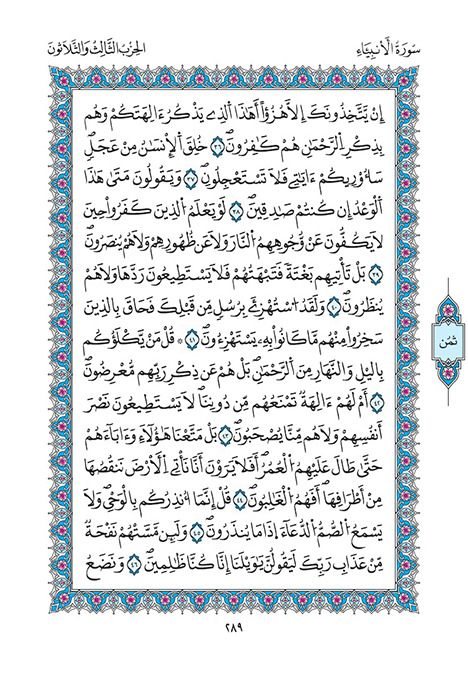 سورة الأنبياء
الحزب الثالث والثلاثون
إن يتخذونك إلا هزؤا أهذا الذي يذكر ءالهتكم وهم
بذكر الرحمان هم كافرون ٣٦ خلق الإنسان من عجل
سأوريكم ءاياتي فلا تستعجلون ٣٧ ويقولون متى هذا
الوعد إن كنتم صادقين ٣٨ لو يعلم الذين كفروا حين
لا يكفون عن وجوههم النار ولا عن ظهورهم ولا هم ينصرون
٣٩ بل تأتيهم بغتة فتبهتهم فلا يستطيعون ردها ولا هم
ينظرون ٤٠ ولقد استهزئ برسل من قبلك فحاق بالذين
سخروا منهم ما كانوا به يستهزءون ٤١ * قل من يكلؤكم
باليل والنهار من الرحمان بل هم عن ذكر ربهم معرضون
٤٢ أم لهم ءالهة تمنعهم من دوننا لا يستطيعون نصر
أنفسهم ولا هم منا يصحبون ٤٣ بل متعنا هؤلاء وءاباءهم
حتى طال عليهم العمر أفلا يرون أنا نأتي الأرض ننقصها
من أطرافها أفهم الغالبون ٤٤ قل إنما أنذركم بالوحي ولا
يسمع الصم الدعاء اذا ما ينذرون ٤٥ ولئن مستهم نفحة
من عذاب ربك ليقولن يويلنا إنا كنا ظالمين ٤٦ ونضع
ثمن
٢٨٩